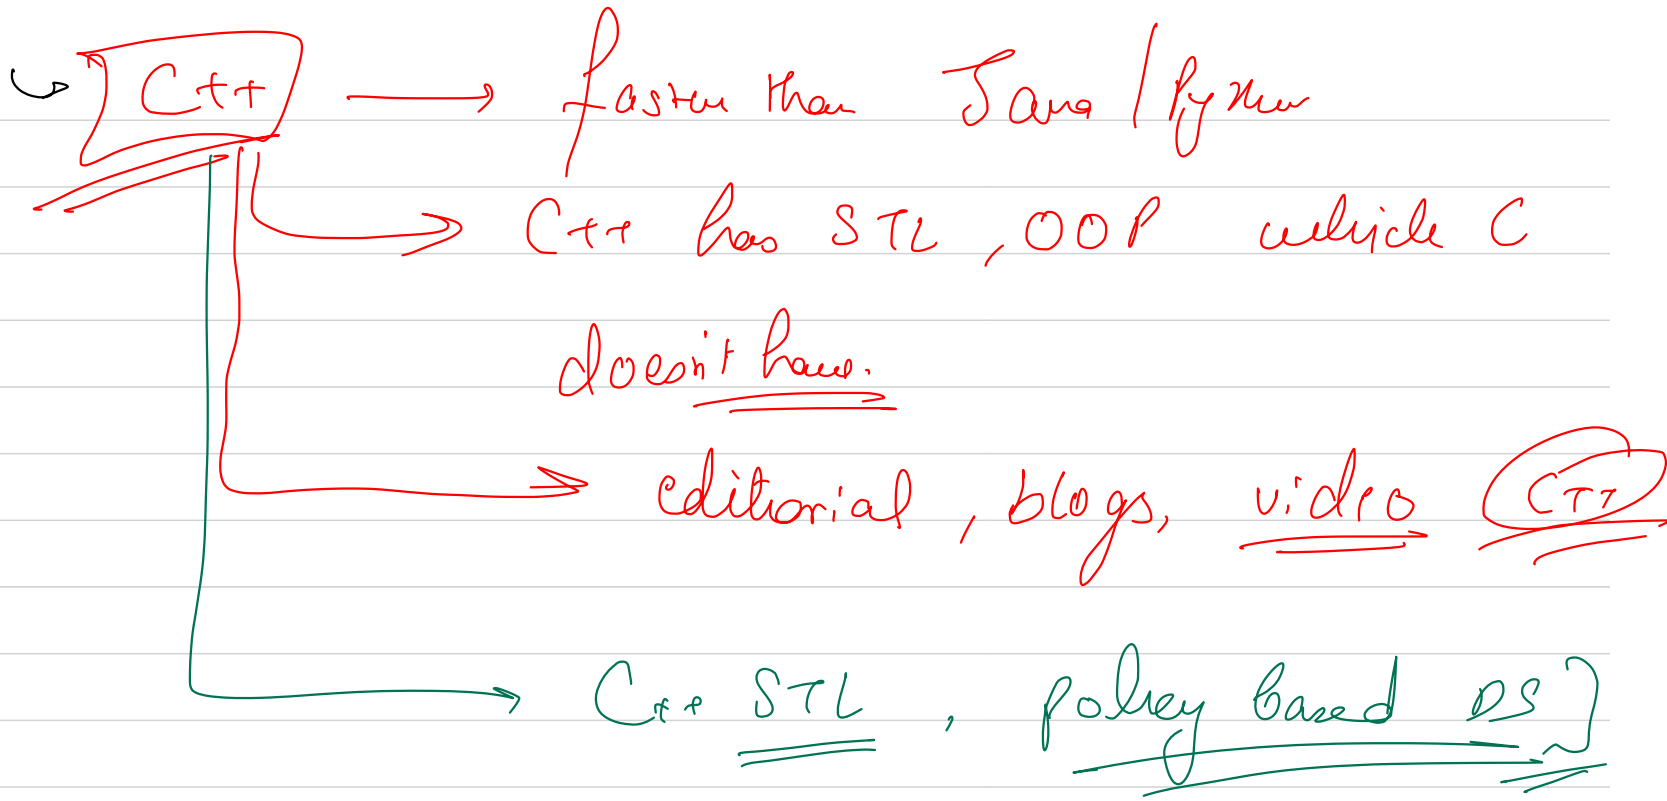 C++ → faster than Java / Python
→ C++ has STL, OOP which C
doesn't have.
→ editorial, blogs, video C++
→ C++ STL, policy based DS }